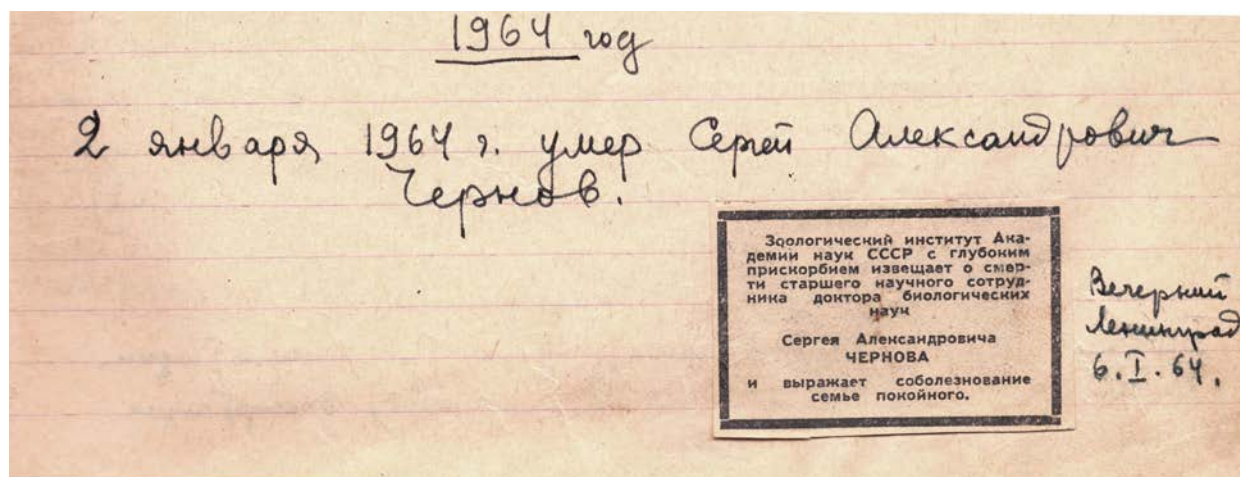 1964 год
2 января 1964 г. умер Сергей Александрович
Чернов.
Зоологический институт Ака-
демии наук СССР с глубоким
прискорбием извещает о смер-
ти старшего научного сотруд-
ника доктора биологических
наук
Сергея Александровича
ЧЕРНОВА
и выражает соболезнование
семье покойного.
Вечерний
Ленинград
6.I.64.